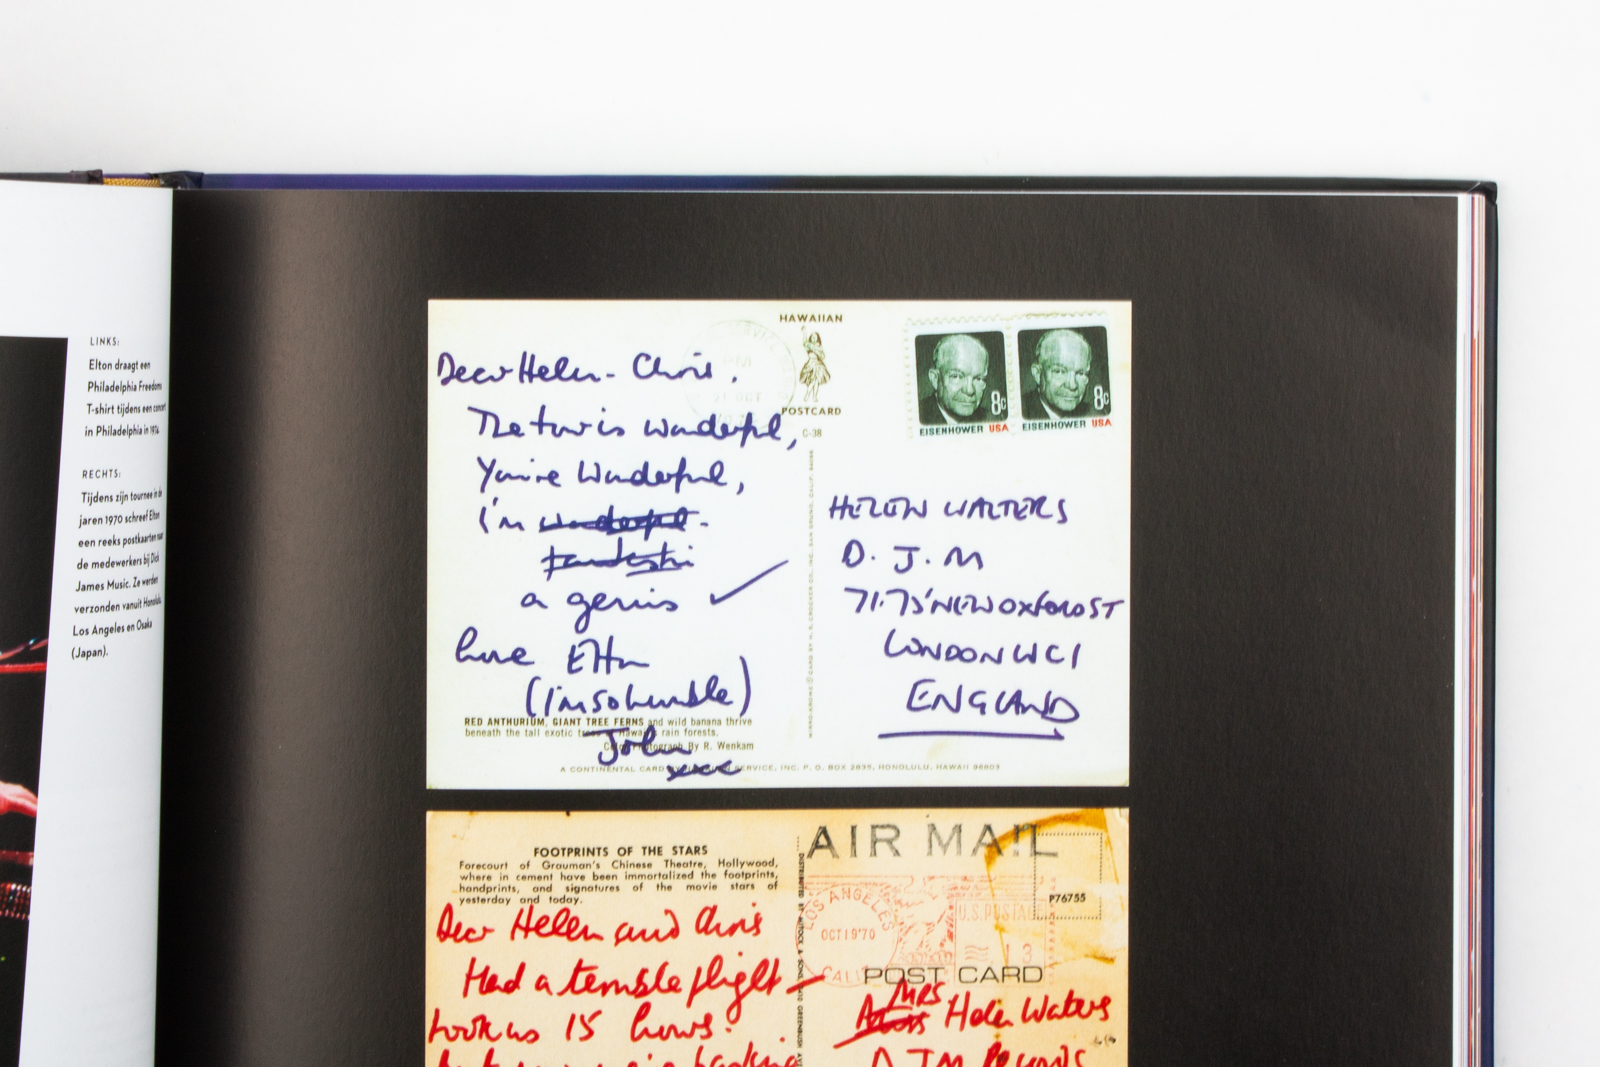 LINKS:
Elton draagt een
Philadelphia Freedom
T-shirt tijdens een concert
in Philadelphia in 1974.
RECHTS:
Tijdens zijn tournee in de
jaren 1970 schreef Elton
een reeks postkaarten naar
de medewerkers bij Dick
James Music. Ze werden
verzonden vanuit Honolulu,
Los Angeles en Osaka
(Japan).
HAWAIIAN
POSTCARD
C-38
Dear Helen - Chris.
The tour is wonderful,
You're Wonderful,
I'm wonderful.
fantastic
a genius ✓
love Elton
(I'm so humble)
John
xxx
RED ANTHURIUM, GIANT TREE FERNS and wild banana thrive
beneath the tall exotic trees of Hawaii's rain forests.
Color Photograph By R. Wenkam
A CONTINENTAL CARD SERVICE, INC. P. O. BOX 2835, HONOLULU, HAWAII 96803
8c 8c
EISENHOWER USA EISENHOWER USA
HELEN WALTERS
D. J. M
71-75 NEW OXFORD ST
LONDON WC1
ENGLAND
FOOTPRINTS OF THE STARS
Forecourt of Grauman's Chinese Theatre, Hollywood,
where in cement have been immortalized the footprints,
handprints, and signatures of the movie stars of
yesterday and today.
Dear Helen and Chris
Had a terrible flight –
took us 15 hours.
AIR MAIL
P76755
LOS ANGELES
OCT19'70
CALIF
U.S. POSTAGE
13
POST CARD
MRS
Helen Walters
D J M RECORDS